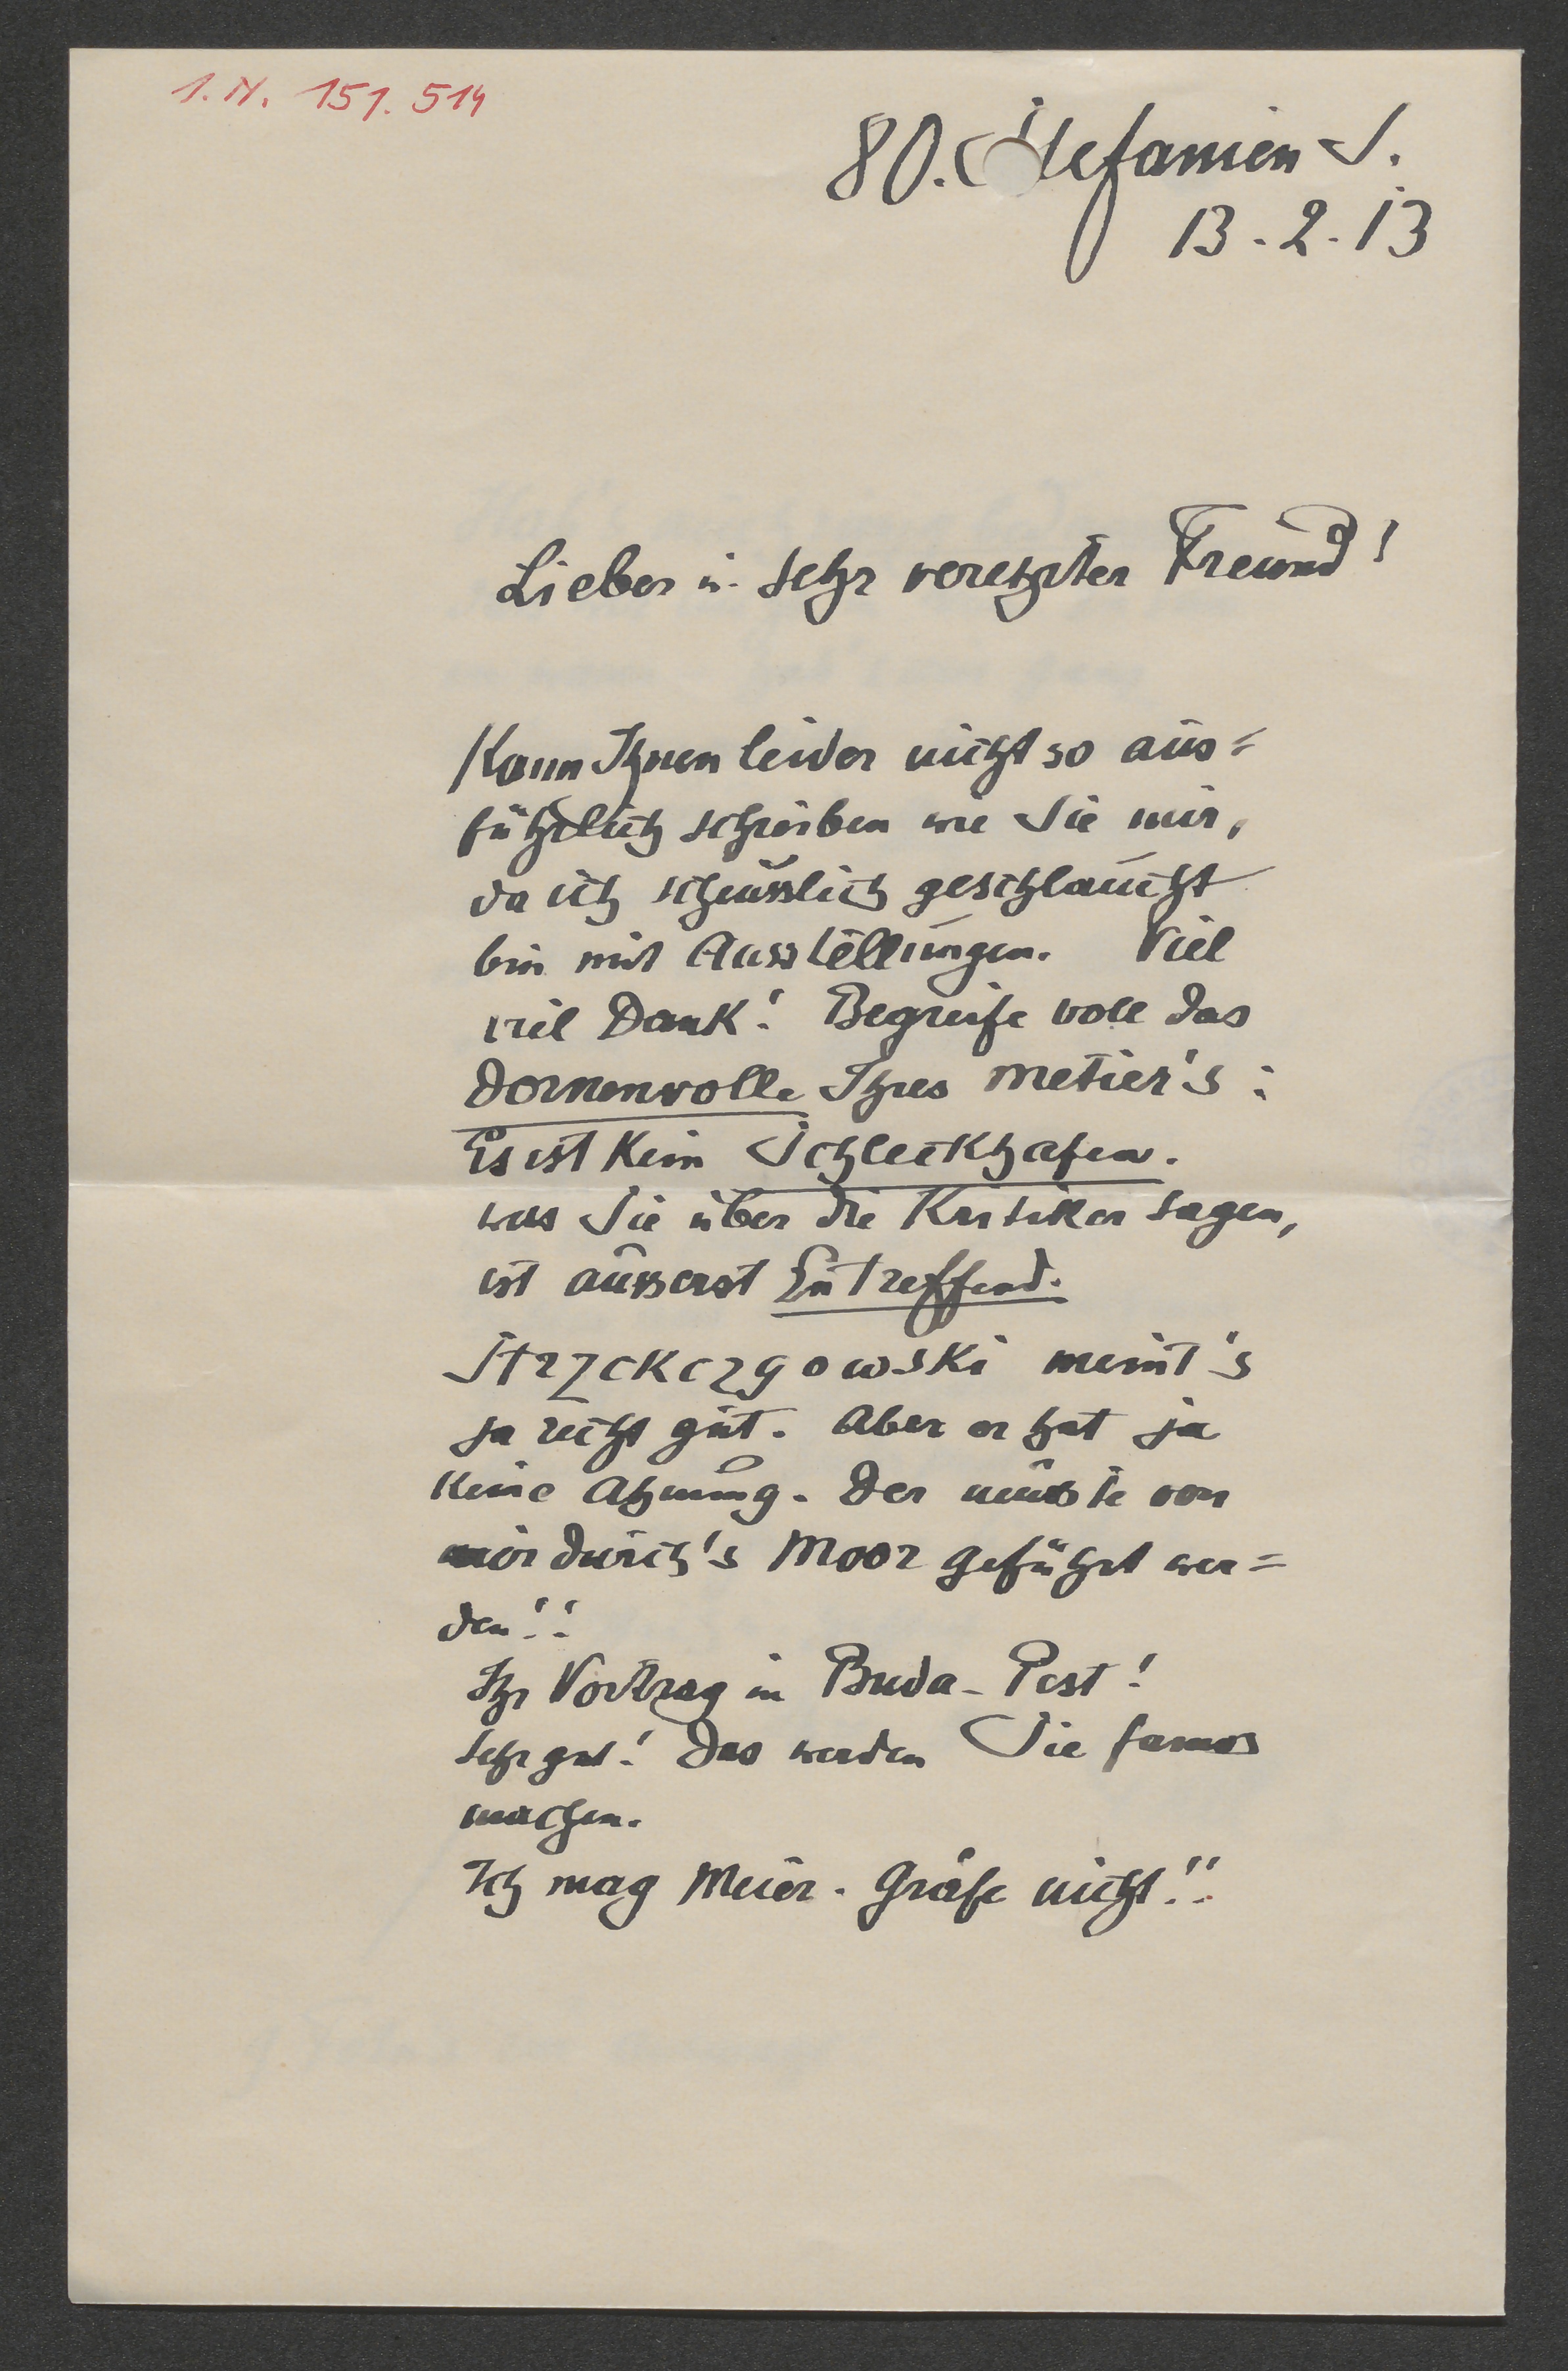 I.N. 151.514
80. Stefanien S.
13.2.13
Lieber u. sehr verehrter Freund!
Kann Ihnen leider nicht so aus=
führlich schreiben wie Sie mir,
da ich scheusslich geschlaucht
bin mit Ausstellungen. Viel
viel Dank! Begreife voll das
Dornenvolle Ihres Metier's:
Es ist kein Schleckhafen.
was Sie über die Kritiker sagen,
ist äusserst Zutreffend.
Strzckczgowski meint's
ja recht gut. Aber er hat ja
keine Ahnung. Der müsste von
mir durch's Moor geführt wer=
den!!
Ihr Vortrag in Buda-Pest!
Sehr gut! Das werden Sie famos
machen.
Ich mag Meier-Gräfe nicht!!